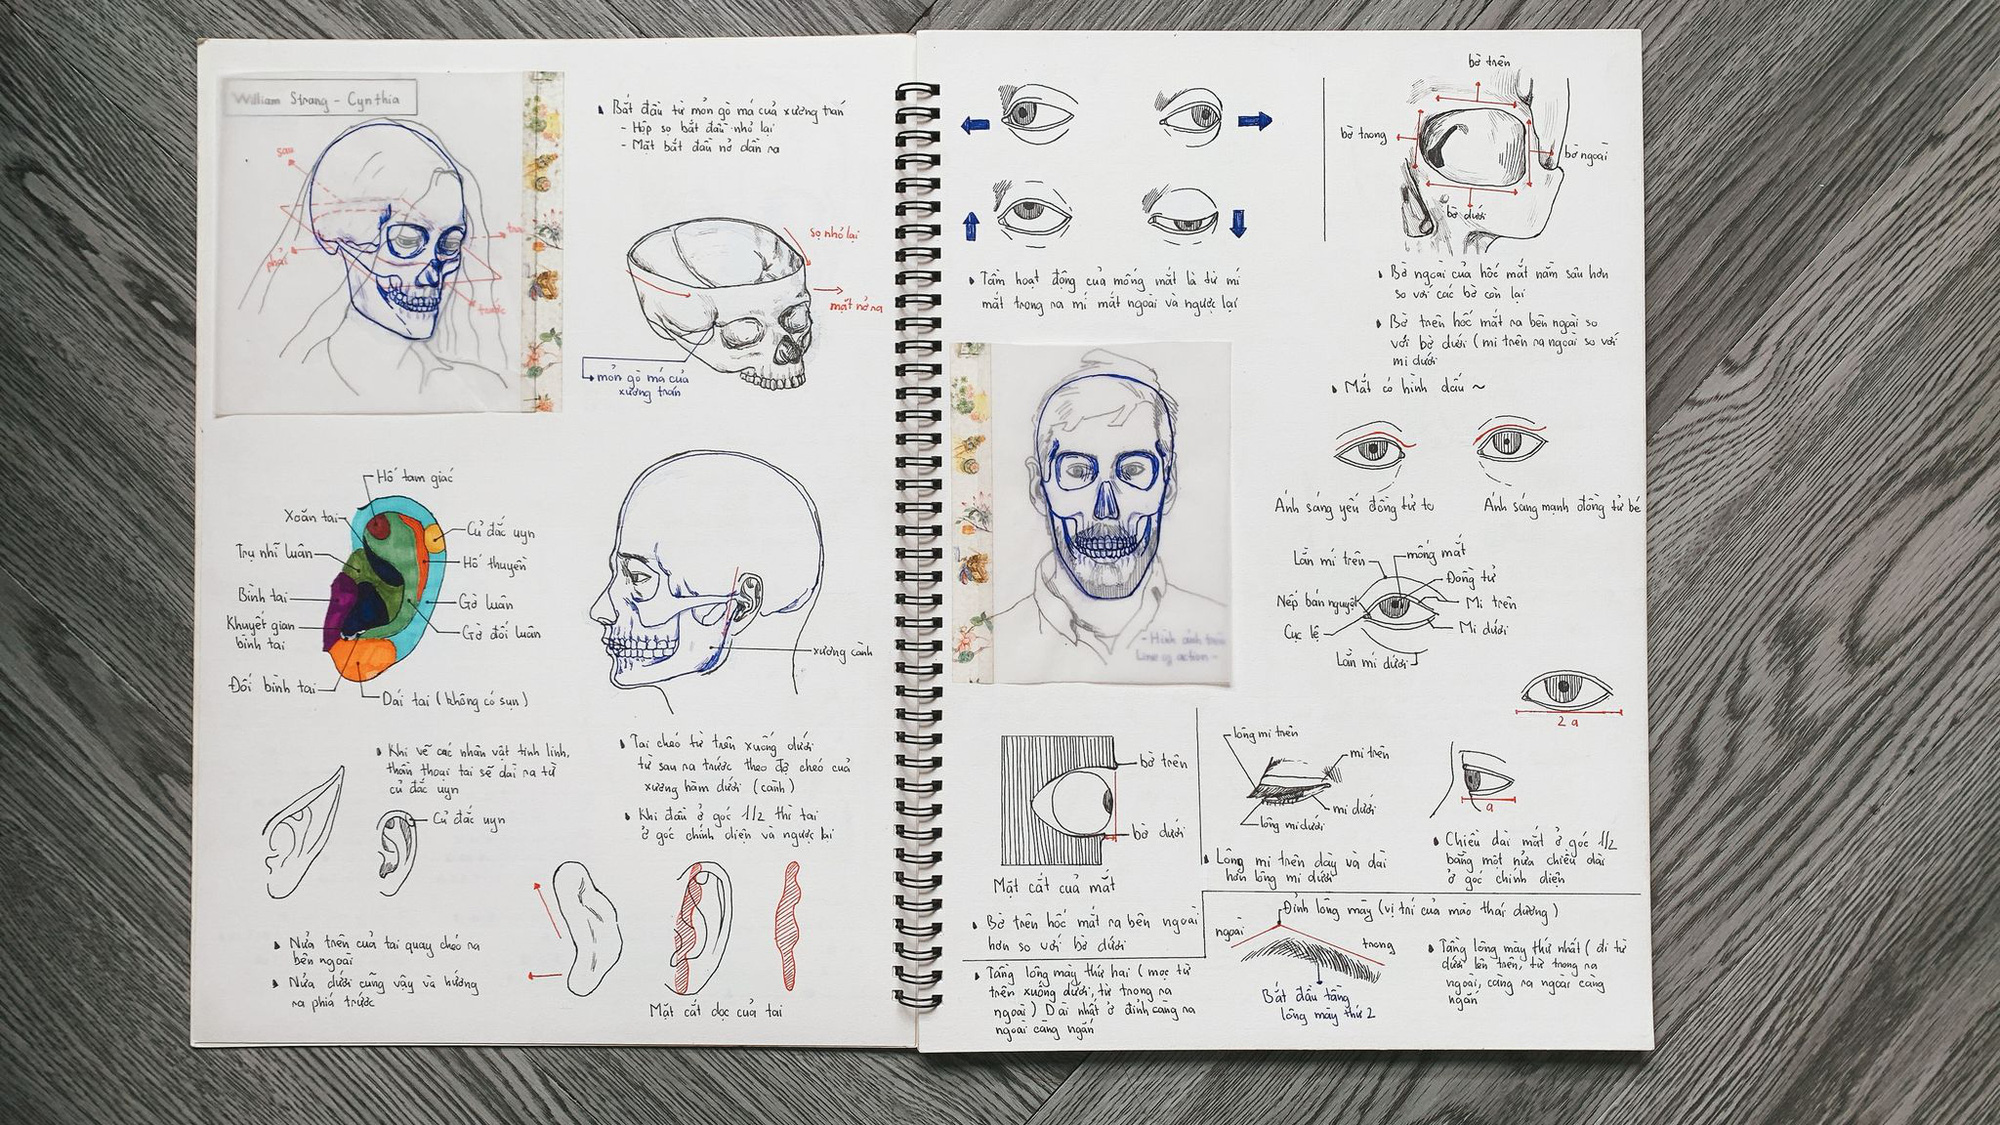 William Strang - Cynthia
sau
phải
trước
Bắt đầu từ mỏn gò má của xương trán
- Hộp sọ bắt đầu nhỏ lại
- Mặt bắt đầu nở dần ra
sọ nhỏ lại
mặt nở ra
mỏn gò má của
xương trán
Hố tam giác
Xoắn tai
Trụ nhĩ luân
Bình tai
Khuyết gian
bình tai
Đối bình tai
Củ đắc uyn
Hố thuyền
Gờ luân
Gờ đối luân
Dái tai (không có sụn)
xương cành
Khi vẽ các nhân vật tinh linh,
thần thoại tai sẽ dài ra từ
củ đắc uyn
Củ đắc uyn
Tai chéo từ trên xuống dưới
từ sau ra trước theo độ chéo của
xương hàm dưới (cành)
Khi đầu ở góc 1/2 thì tai
ở góc chính diện và ngược lại
Nửa trên của tai quay chéo ra
bên ngoài
Nửa dưới cũng vậy và hướng
ra phía trước
Mặt cắt dọc của tai
Tầm hoạt động của mống mắt là từ mí
mắt trong ra mí mắt ngoài và ngược lại
bờ trên
bờ trong
bờ ngoài
bờ dưới
Bờ ngoài của hốc mắt nằm sâu hơn
so với các bờ còn lại
Bờ trên hốc mắt ra bên ngoài so
với bờ dưới (mi trên ra ngoài so với
mi dưới
Mắt có hình dấu ~
Ánh sáng yếu đồng tử to
Ánh sáng mạnh đồng tử bé
Line of action -
Lằn mí trên
mống mắt
Đồng tử
Nếp bán nguyệt
Mi trên
Cục lệ
Mi dưới
Lằn mí dưới
2a
bờ trên
bờ dưới
Mặt cắt của mắt
lông mi trên
mi trên
mi dưới
lông mi dưới
Lông mi trên dày và dài
hơn lông mi dưới
a
Chiều dài mắt ở góc 1/2
bằng một nửa chiều dài
ở góc chính diện
Bờ trên hốc mắt ra bên ngoài
hơn so với bờ dưới
Tầng lông mày thứ hai (mọc từ
trên xuống dưới, từ trong ra
ngoài) Dài nhất ở đỉnh càng ra
ngoài càng ngắn
Đỉnh lông mày (vị trí của mào thái dương)
ngoài
trong
Bắt đầu tầng
lông mày thứ 2
Tầng lông mày thứ nhất (đi từ
dưới lên trên, từ trong ra
ngoài, càng ra ngoài càng
ngắn